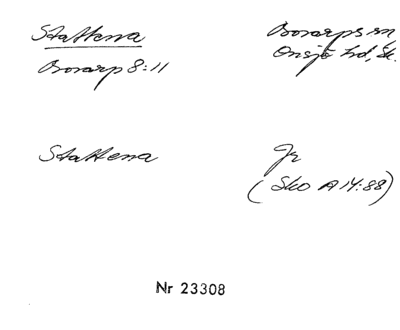 Stattena
Bosarps sn,
Bosarp 8:11
Onsjö hd, Sk.
Stattena
Jr
(Sko A 14:88)
Nr 23308